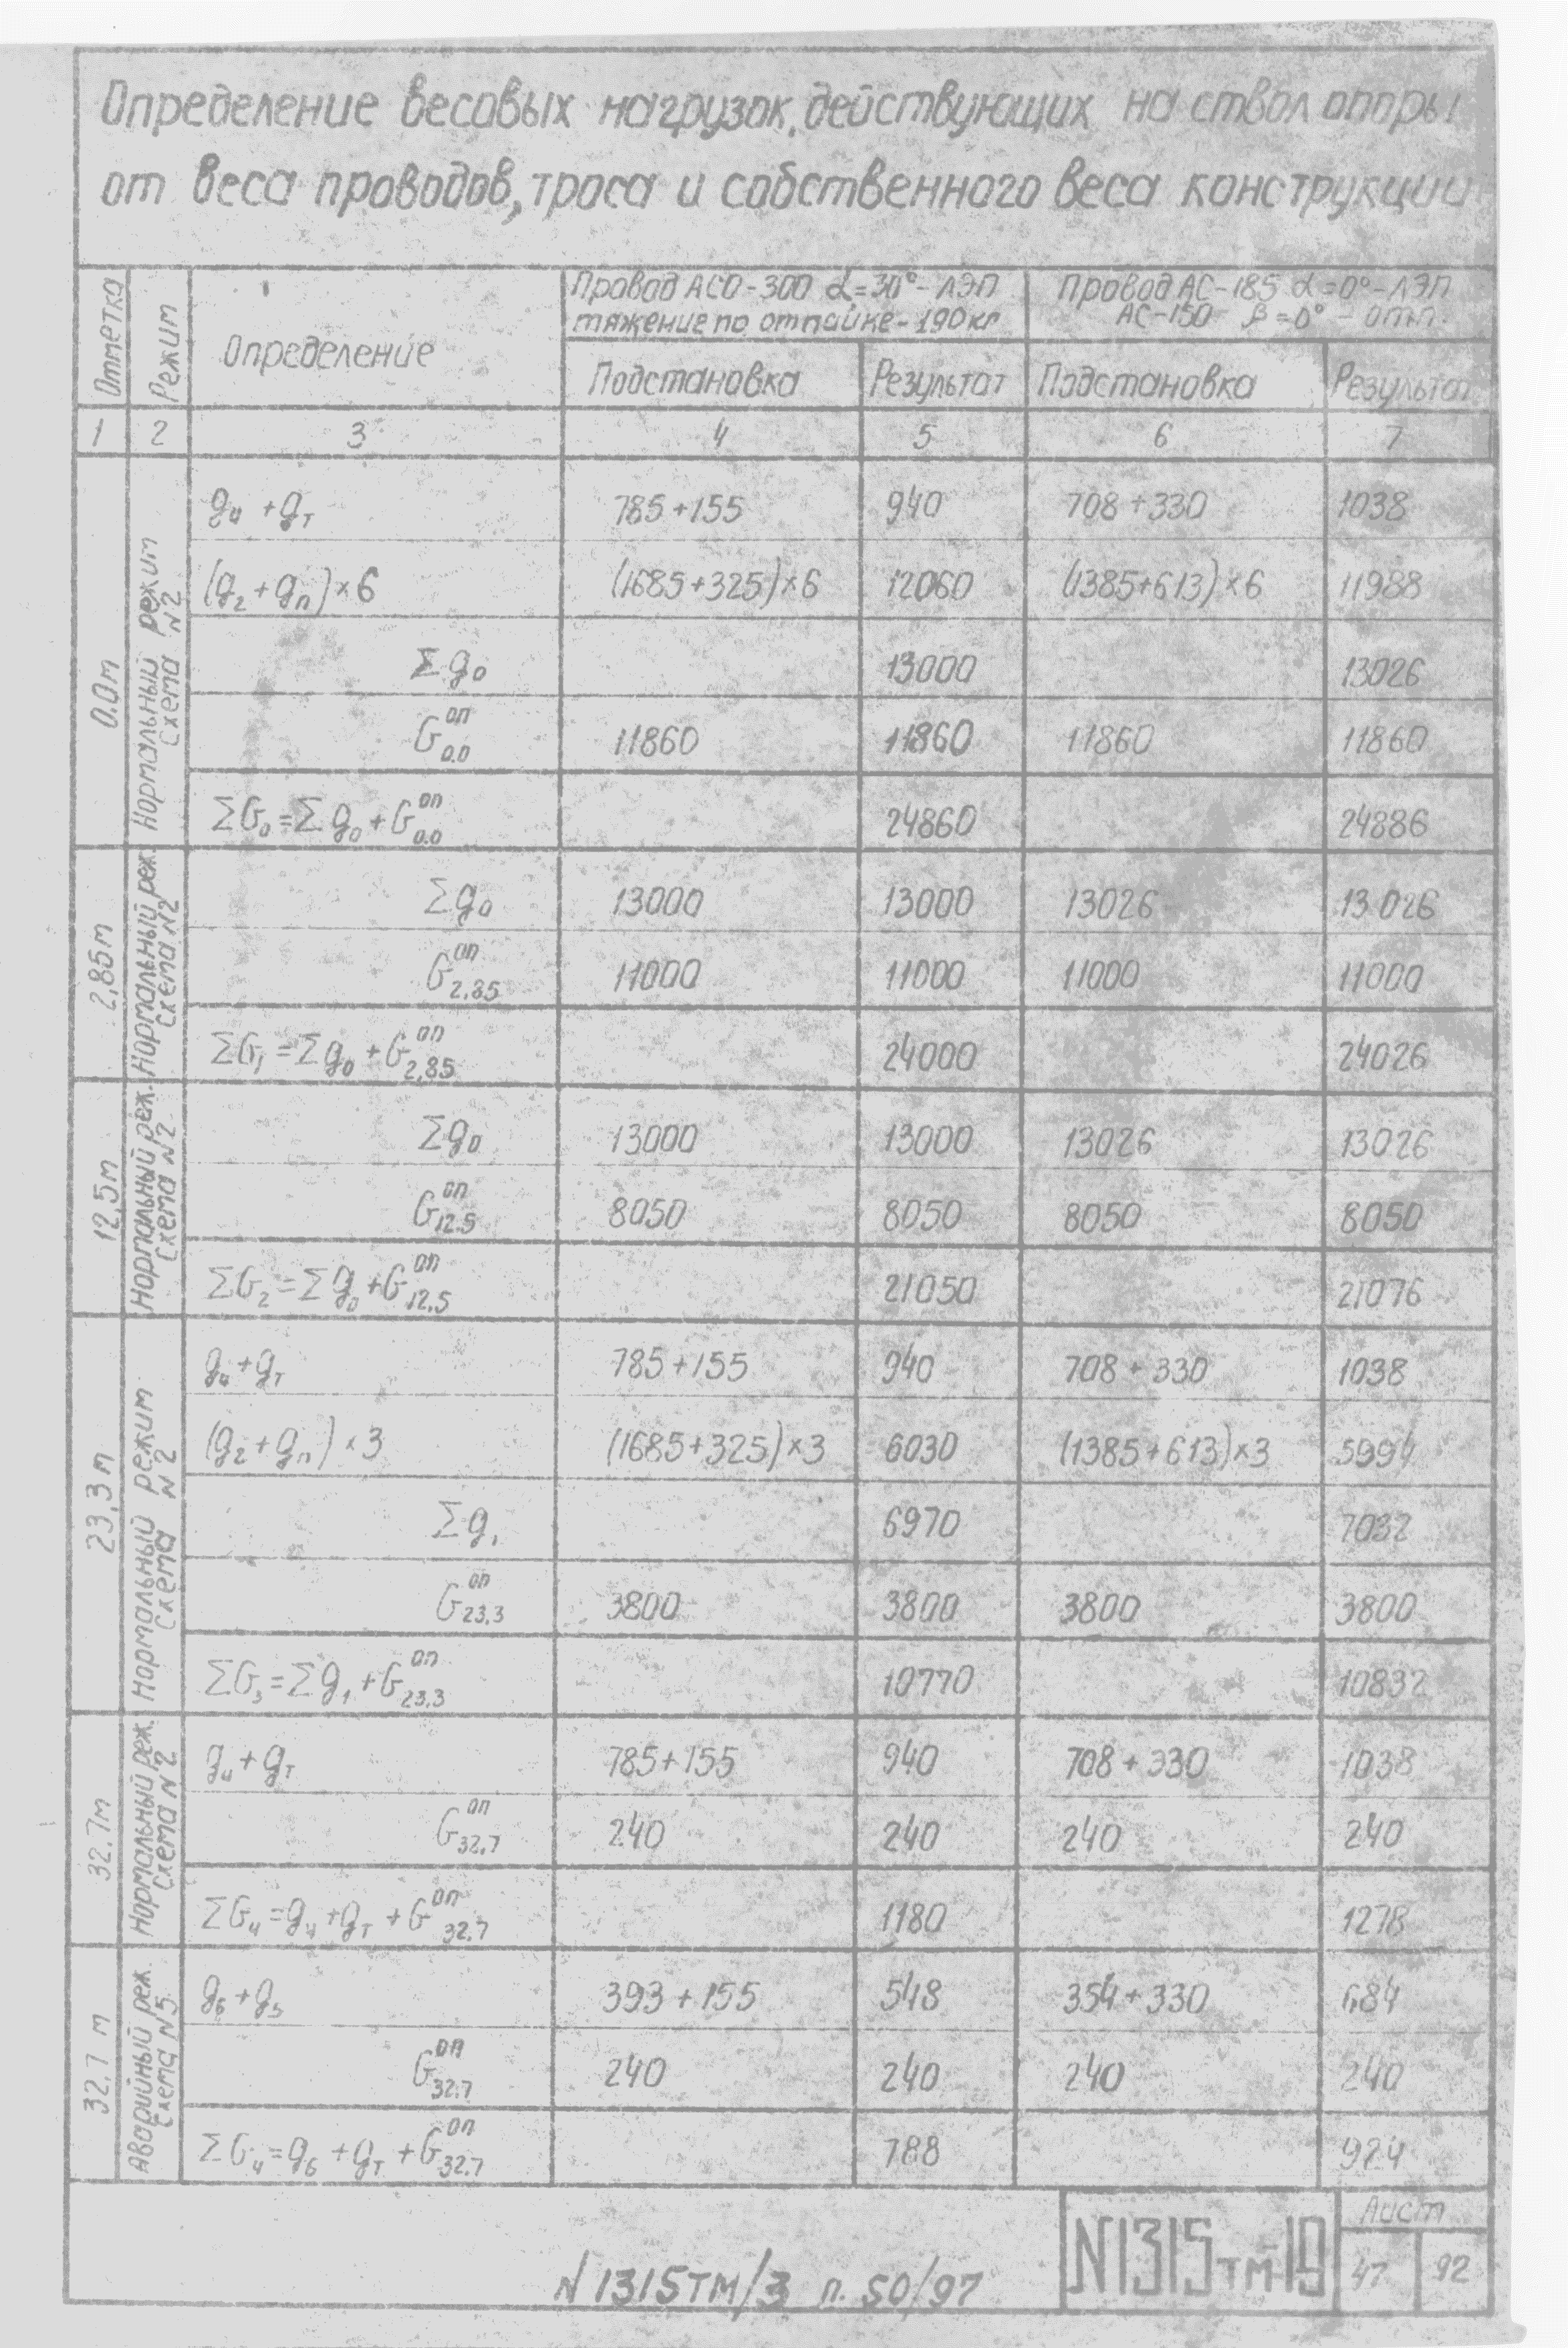 Определение весовых нагрузок, действующих на ствол опоры
от веса проводов, троса и собственного веса конструкции
Отметка
Режим
Определение
Провод АСО-300 α=30°-ЛЭП
тяжение по отпайке-190кг
Провод АС-185 α=0°-ЛЭП
АС-150 β=0° - отп.
Подстановка Результат Подстановка Результат
1 2 3 4 5 6 7
0.0м
Нормальный режим
Схема N2
g₄ + gт 785+155 940 708+330 1038
(g₂ + gп)×6 (1685+325)×6 12060 (1385+613)×6 11988
Σg₀ 13000 13026
G0.0 оп 11860 11860 11860 11860
ΣG₀=Σg₀+G0.0 оп 24860 24886
2,85м
Нормальный реж.
Схема N2
Σg₀ 13000 13000 13026 13026
G2,85 оп 11000 11000 11000 11000
ΣG₁=Σg₀+G2,85 оп 24000 24026
12,5м
Нормальный реж.
Схема N2
Σg₀ 13000 13000 13026 13026
G12.5 оп 8050 8050 8050 8050
ΣG₂=Σg₀+G12,5 оп 21050 21076
23,3м
Нормальный режим
Схема N2
g₄+gт 785+155 940 708+330 1038
(g₂+gп)×3 (1685+325)×3 6030 (1385+613)×3 5994
Σg₁ 6970 7032
G23.3 оп 3800 3800 3800 3800
ΣG₃=Σg₁+G23.3 оп 10770 10832
32.7м
Нормальный реж.
Схема N2
g₄+gт 785+155 940 708+330 1038
G32,7 оп 240 240 240 240
ΣG₄=g₄+gт+G32.7 оп 1180 1278
32,7 м
Аварийный реж.
Схема N5
g₆+g₅ 393+155 548 354+330 684
G32.7 оп 240 240 240 240
ΣG₄=g₆+gт+G32.7 оп 788 924
N1315тм-19
Лист
47 92
N1315ТМ/3 п. 50/97